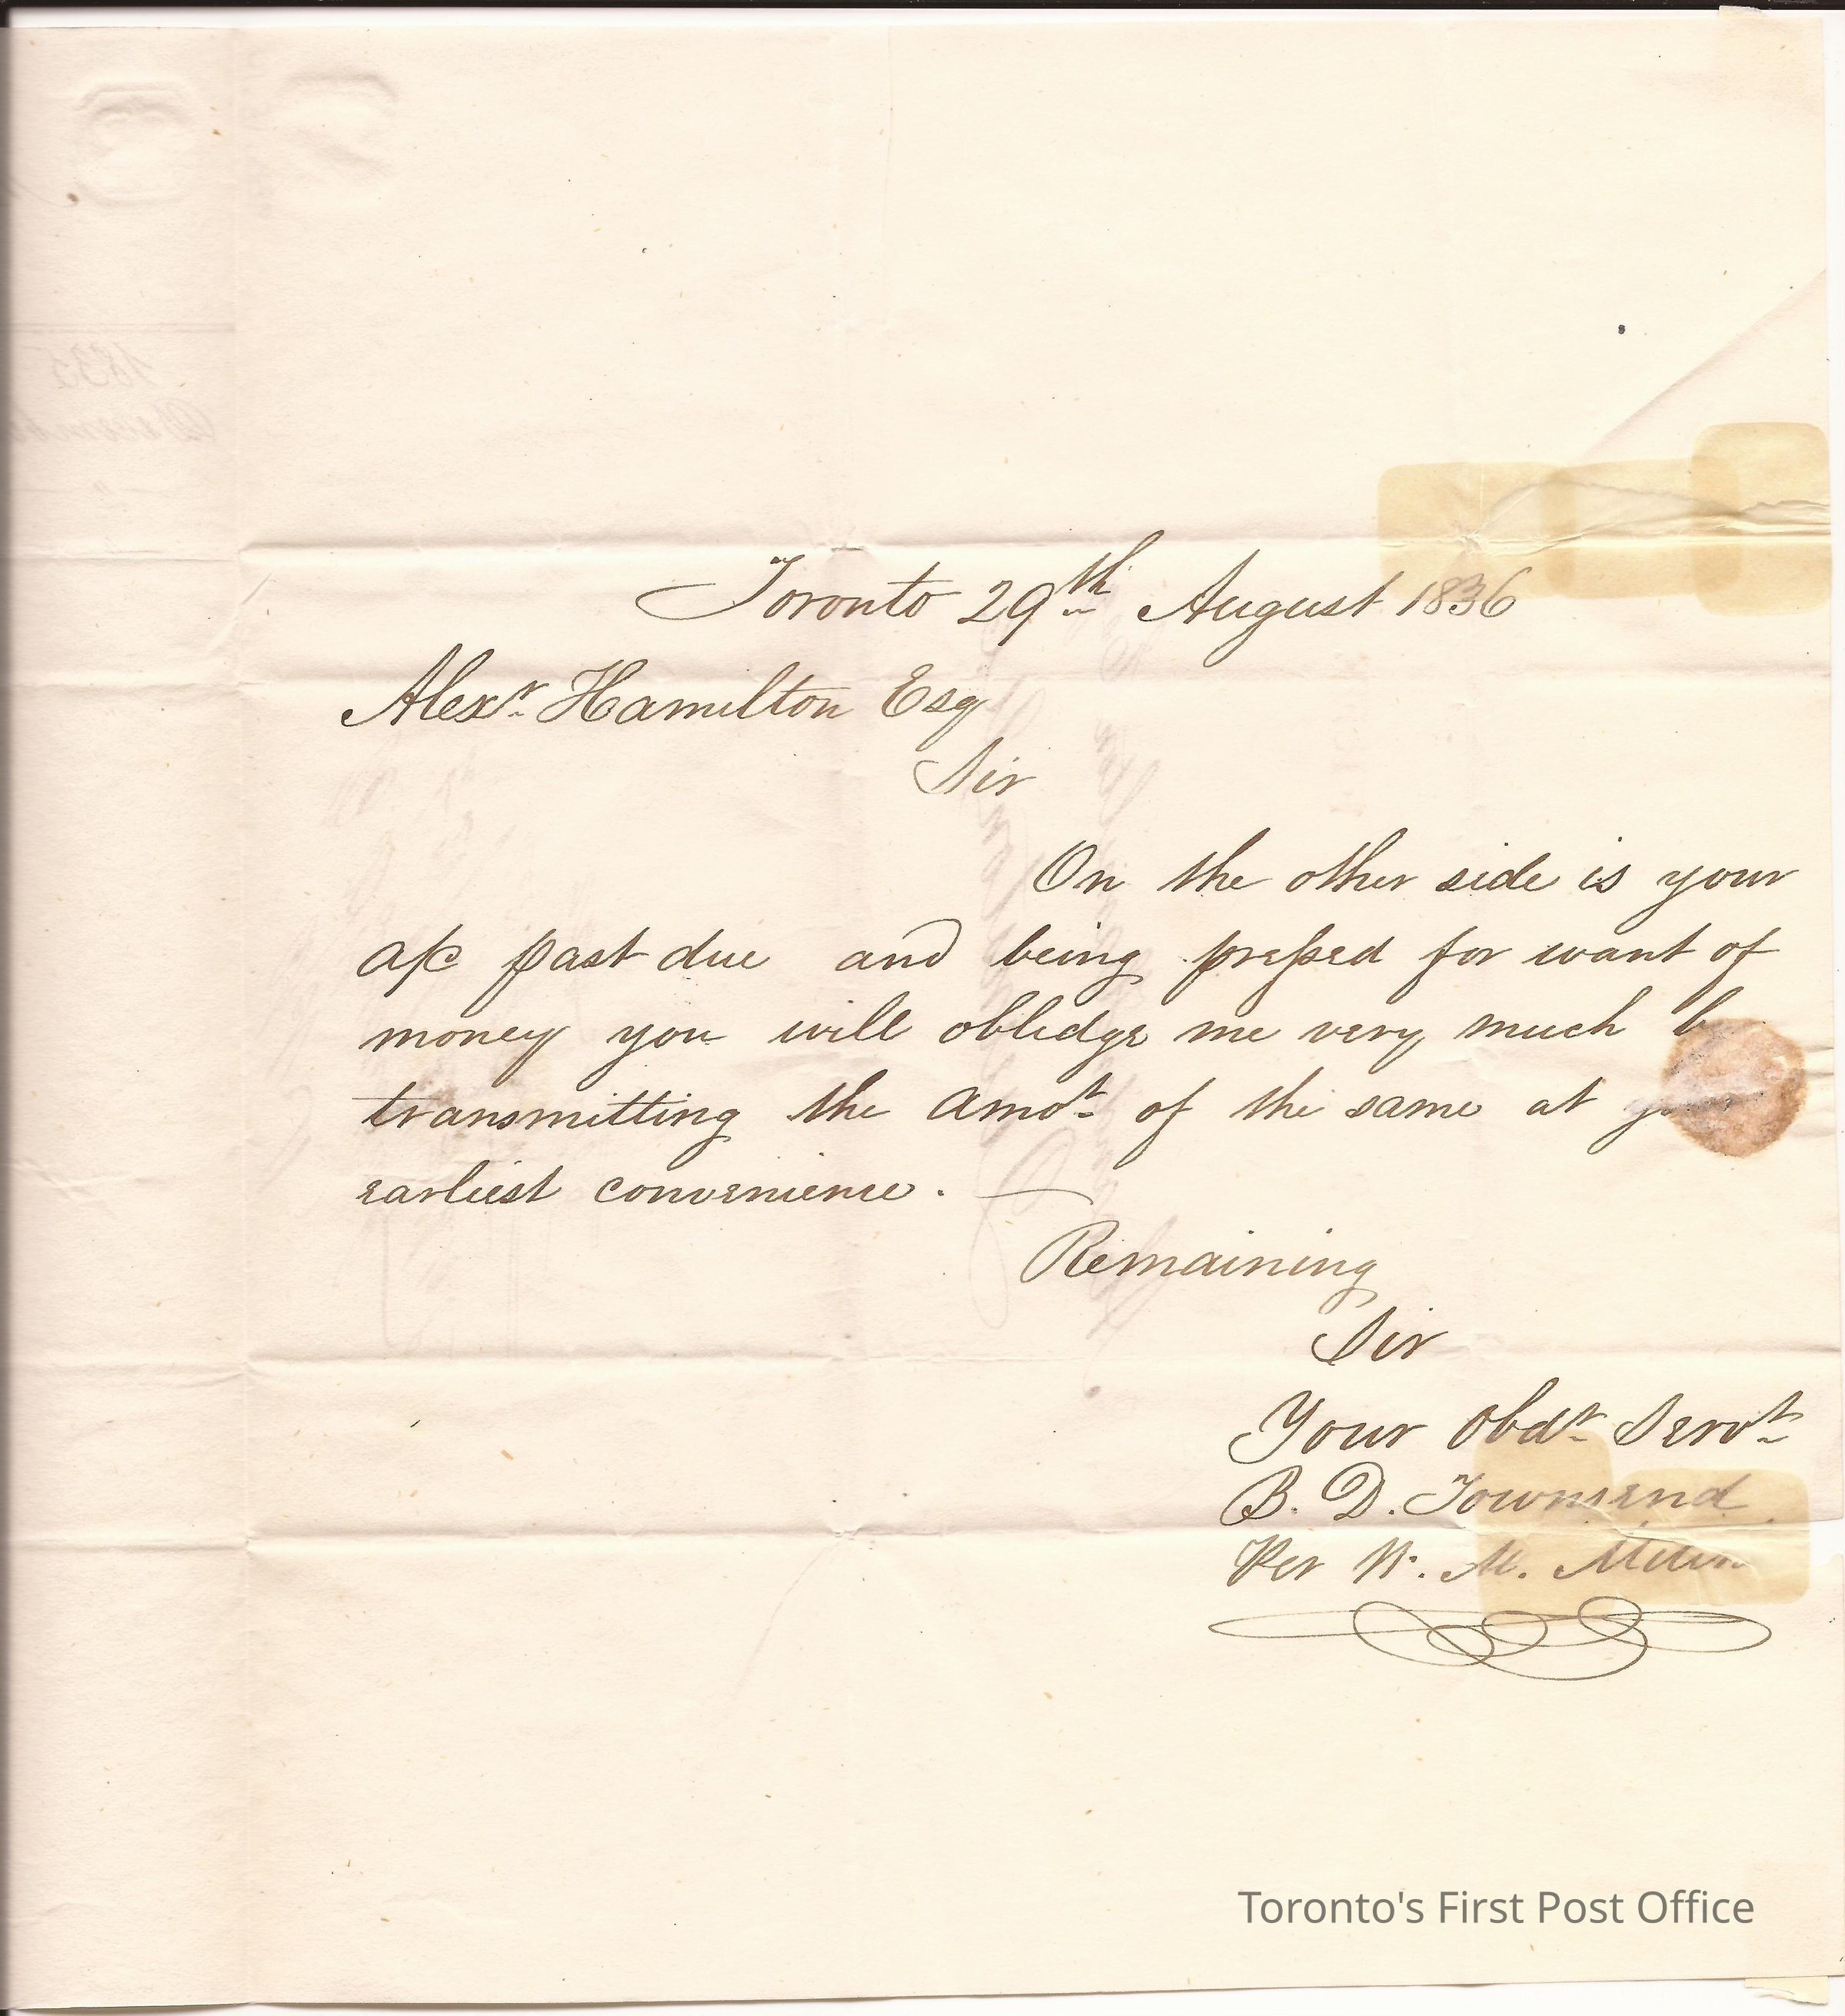 Toronto 29th August 1836
Alexr. Hamilton Esq
Sir
On the other side is your
a/c past due and being prefsed for want of
money you will obledge me very much
transmitting the Amot. of the same at your
earliest convenience.
Remaining
Sir
Your Obdt. Servt.
B. D. Townsend
Per W. M.
1835
Toronto's First Post Office